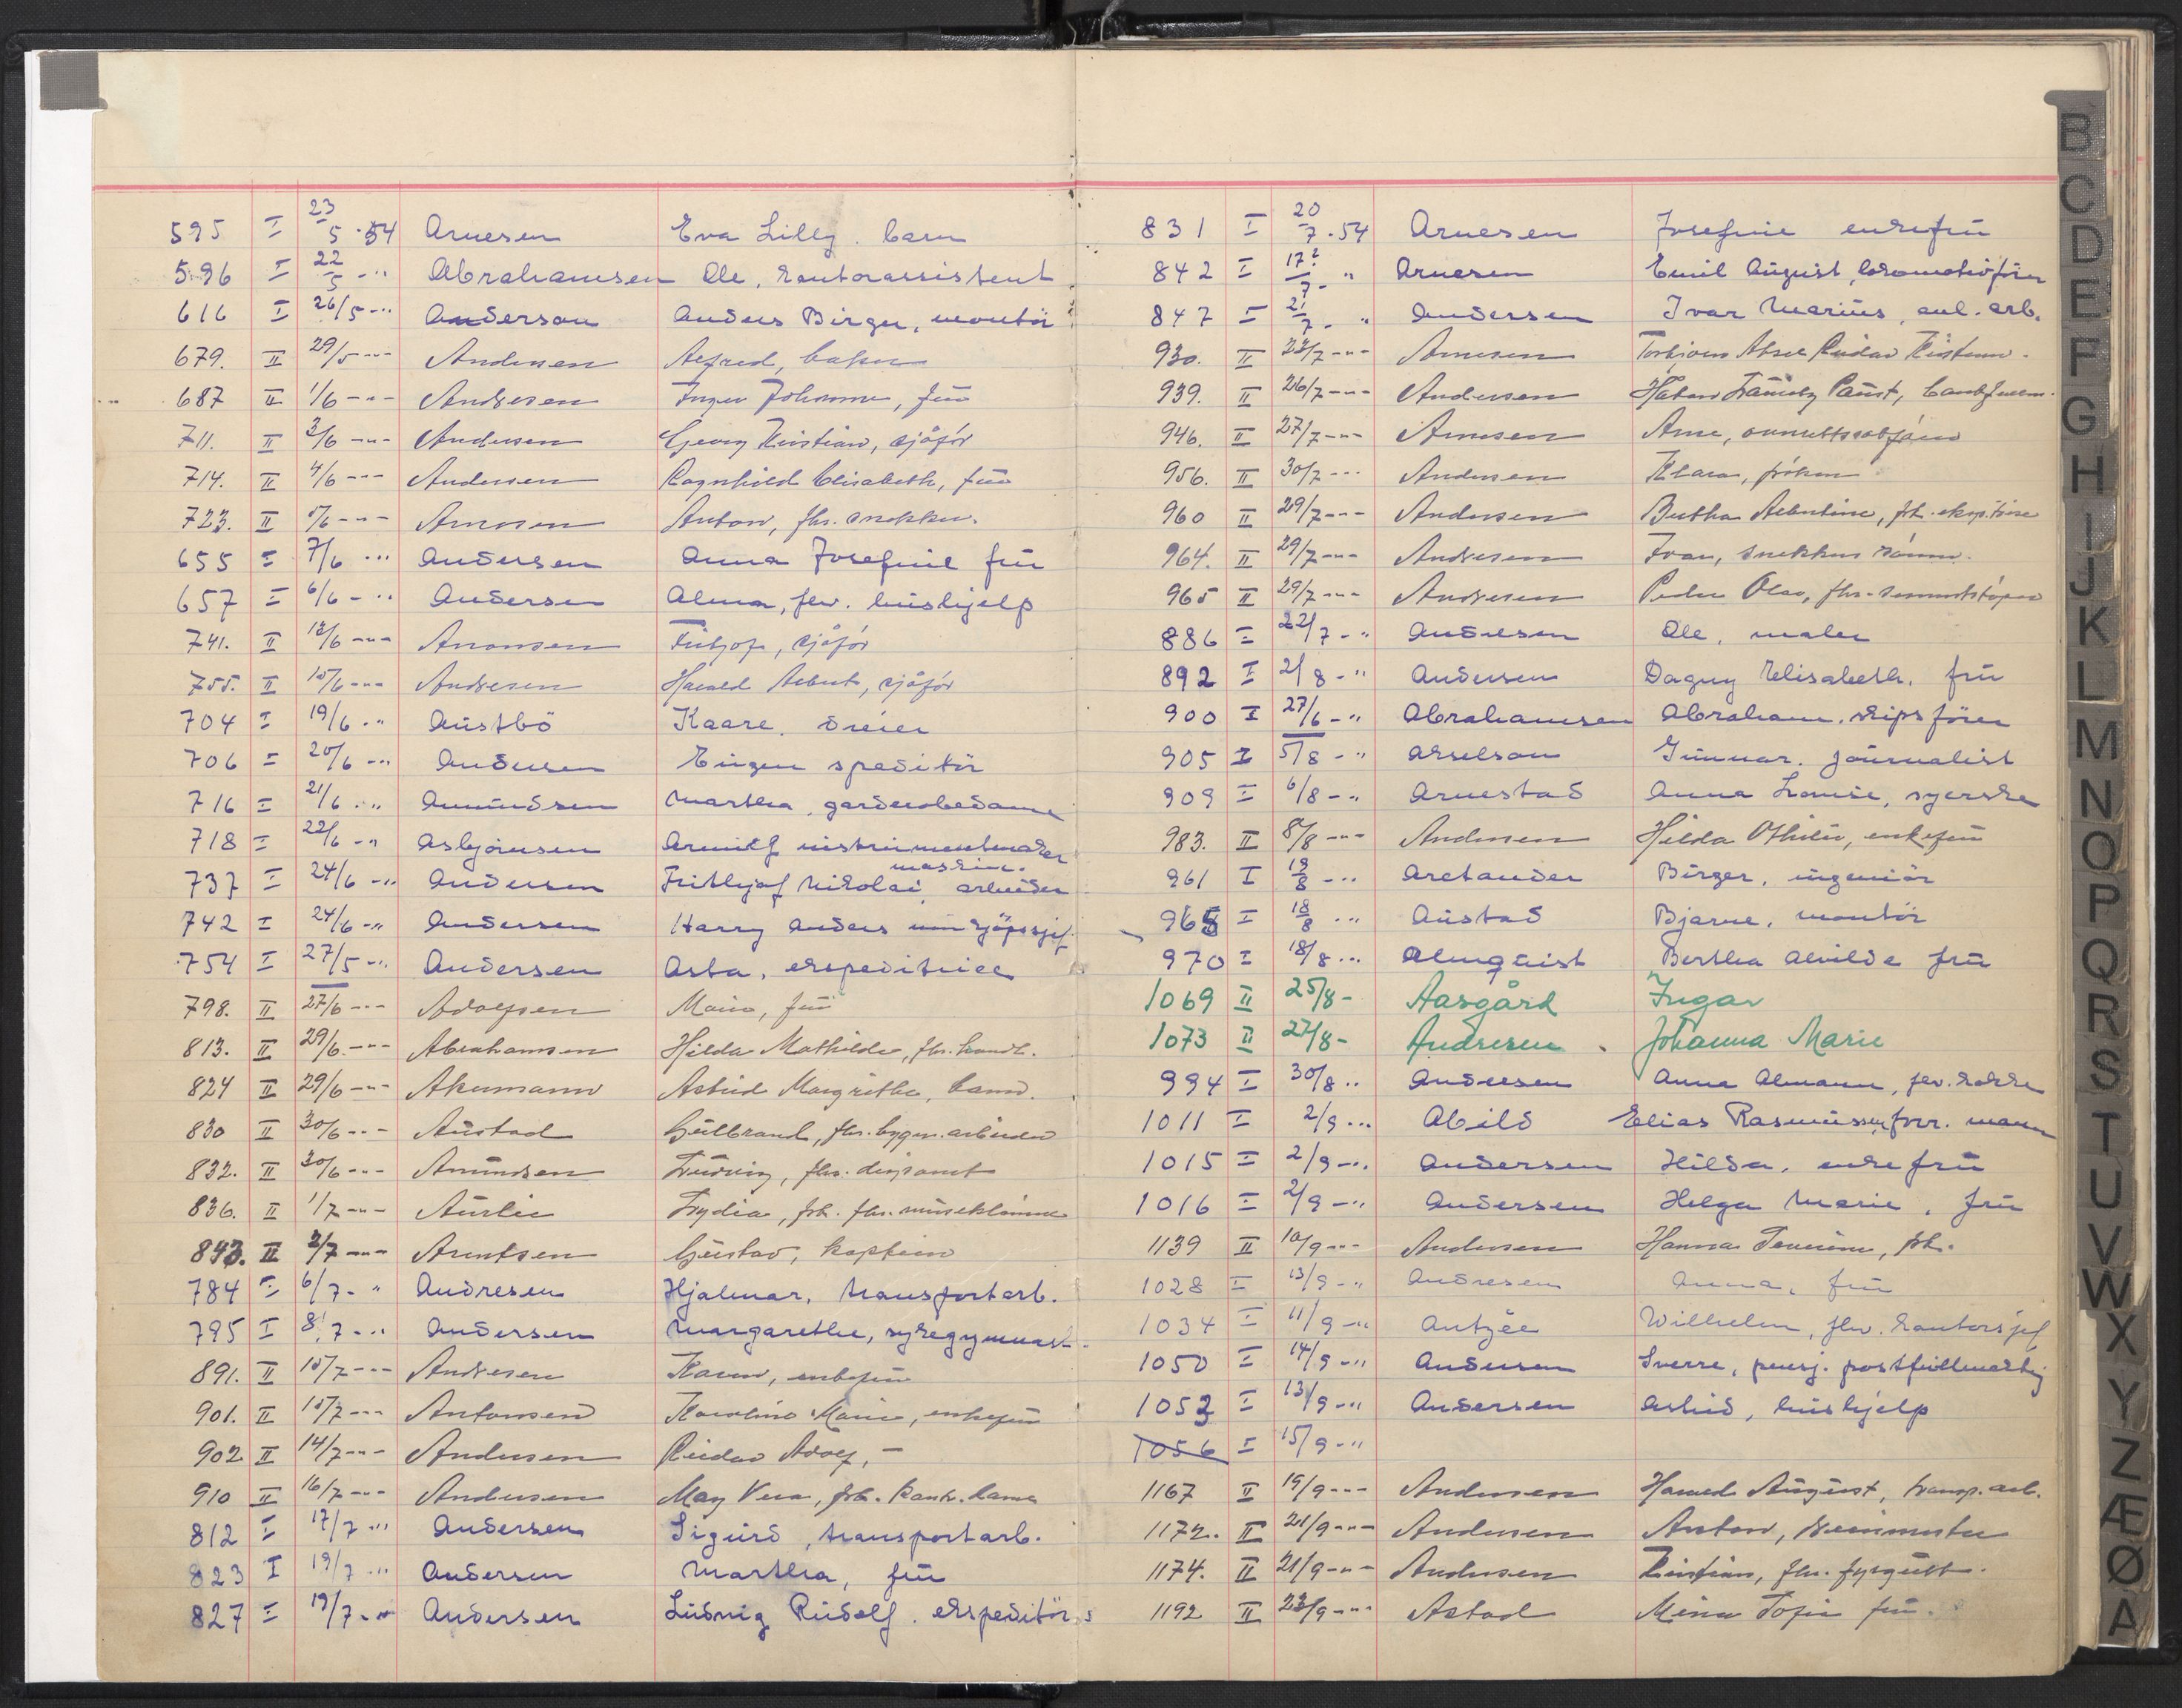 595 I 23/5.54 Arnesen Eva Lilly. barn
596 I 22/5 - " Abrahamsen Ole, kontorassistent
616 I 26/5 - " Anderson Anders Birger, montör
679. II 29/5 - " - Andersen Alfred, baker
687 II 1/6 - " - Andresen Inger Johanne, frü
711. II 3/6 - " - Andersen Georg Kristian, sjåfór
714. II 4/6 - " - Andersen Ragnhild Elisabeth, frü
723. II 5/6 - " - Arnesen Anton, fhv. snekker.
655 I 7/6 - " Andersen Anna Josefine frü
657 I 6/6 - " Andersen Alma, fhv. hüshjelp
741. II 12/6 - " - Aronsen Fritjof, sjåfór
755. II 15/6 - " - Andresen Harald Albert, sjåfór
704 I 19/6 - " Aüstbö Kaare. dreier
706 I 20/6 - " Andersen Eugen speditör
716 I 21/6 - " Amündsen Martha, garderobedame
718 I 22/6 - " Asbjörnsen Arnülf instrümentmaker
737 I 24/6 - " Andersen Frithjof Nikolai, maskin. arbeider
742 I 24/6 - " Andersen Harry Anders innkjöpssjef
754 I 27/5 - " Andersen Asta, ekspeditrice
798. II 27/6 - " - Adolfsen Marie, frü
813. II 29/6 - " - Abrahamsen Hilda Mathilde, fhv. handl.
824 II 29/6 - " - Akermann Astrid Margrethe, barn.
830 II 30/6 - " - Aüstad Gülbrand, fhv. bygn. arbeider
832. II 30/6 - " - Amündsen Lüdvig, fhv. disponent
836. II 1/7 - " - Aürlie Lydia, frk. fhv. müsiklærerinne
843. II 2/7 - " - Arntsen Güstav, kaptein
784 I 6/7 - " Andresen Hjalmar, transportarb.
795 I 8/7 - " Andersen Margarethe, sykegymnast.
891. II 15/7 - " - Andresen Karen, enkefrü
901. II 15/7 - " - Antonsen Karoline Marie, enkefrü
902 II 14/7 - " - Andersen Reidar Adolf, -
910 II 16/7 - " - Andersen May Vera, frk. kontr. dame
812 I 17/7 - " Andersen Sigürd, transportarb.
823 I 19/7 - " Andersen Martha, frü
827 I 19/7 - " Andersen Lüdvig Rüdolf. ekspeditör
831 I 20/7.54 Arnesen Josefine enkefrü
842 I 17?/7 - " Arnesen Emil Aügüst, lokomotivförer
847 I 21/7 - " Andersen Ivar Marius, anl. arb.
930. II 23/7 - " - Arnesen Torbjörn Aksel Reidar
939. II 26/7 - " - Andersen Håkon
946. II 27/7 - " - Arnesen Arne,
956. II 30/7 - " - Andersen Klara, fröken
960 II 29/7 - " - Andersen Bertha Albertine, frk. eksp. trise
964. II 29/7 - " - Andresen Ivar, snekker
965 II 29/7 - " - Andresen Peder Olav, fhv. sementstöper
886 I 22/7 - " Andresen Ole, maler
892 I 2/8 - " Andersen Dagny Elisabeth. frü
900 I 27/6 - " Abrahamsen Abraham. skipsförer
905 I 5/8 - " Akselson Günnar. Joürnalist
909 I 6/8 - " Arnestad Anna Lovise, syerske
983. II 8/8 - " - Andersen Hilda Othilie, enkefrü
961 I 19/8 - " Aretander Birger, ingeniör
965 I 18/8 - " Aüstad Bjarne, montör
970 I 18/8 - " Almqüist Bertha Alvilde frü
1069 II 25/8 - Aasgård Ingar
1073 II 27/8 - Andresen Johanna Marie
994 I 30/8 - " Andersen Anna Almann, fhv. kokke
1011 I 2/9 - " Abild Elias Rasmüssen, forr. mann
1015 I 2/9 - " Andersen Hilda, enkefrü
1016 I 2/9 - " Andersen Helga Marie, frü
1139 II 10/9 - " - Andersen Hanna Severine, frk.
1028 I 13/9 - " Andresen Anna, frü
1034 I 11/9 - " Antzée Wilhelm, fhv. kontorsjef
1050 I 14/9 - " Andersen Sverre, pensj. postfüllmektig
1053 I 13/9 - " Andersen Astrid, hüshjelp
1056 I 15/9 - "
1167 II 19/9 - " - Andersen Harald Aügüst, transp. arb.
1172. II 21/9 - " - Andersen Anton,
1174. II 21/9 - " - Andersen Kristian, fhv. fyrgütt.
1192 II 23/9 - " - Astad Mina Sofie frü.
B
C
D
E
F
G
H
I
J
K
L
M
N
O
P
Q
R
S
T
U
V
W
X
Y
Z
Æ
Ø
A